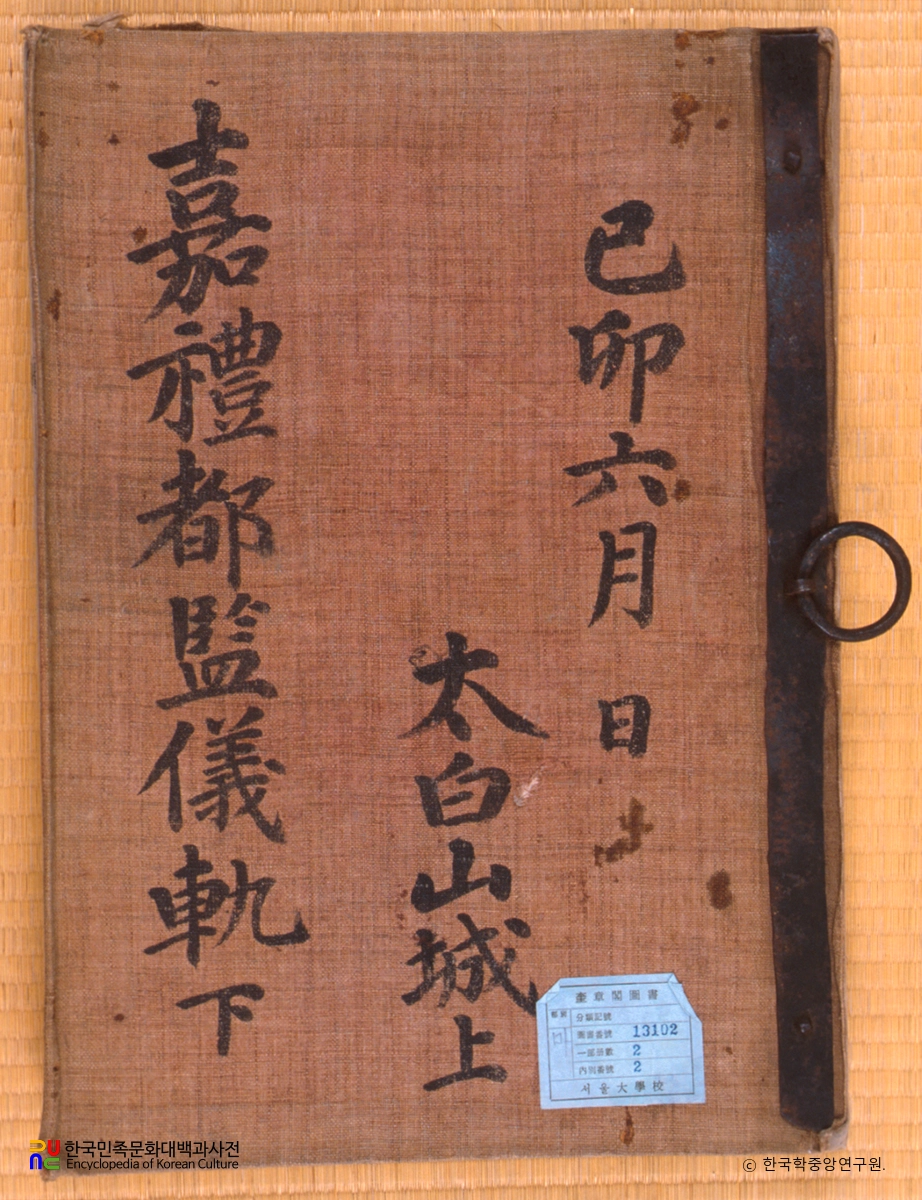 己卯六月 日
太白山城上
嘉禮都監儀軌 下
奎章閣圖書
分類記號
圖書番號 13102
一部冊數 2
內別番號 2
서울大學校
한국민족문화대백과사전
Encyclopedia of Korean Culture
© 한국학중앙연구원.